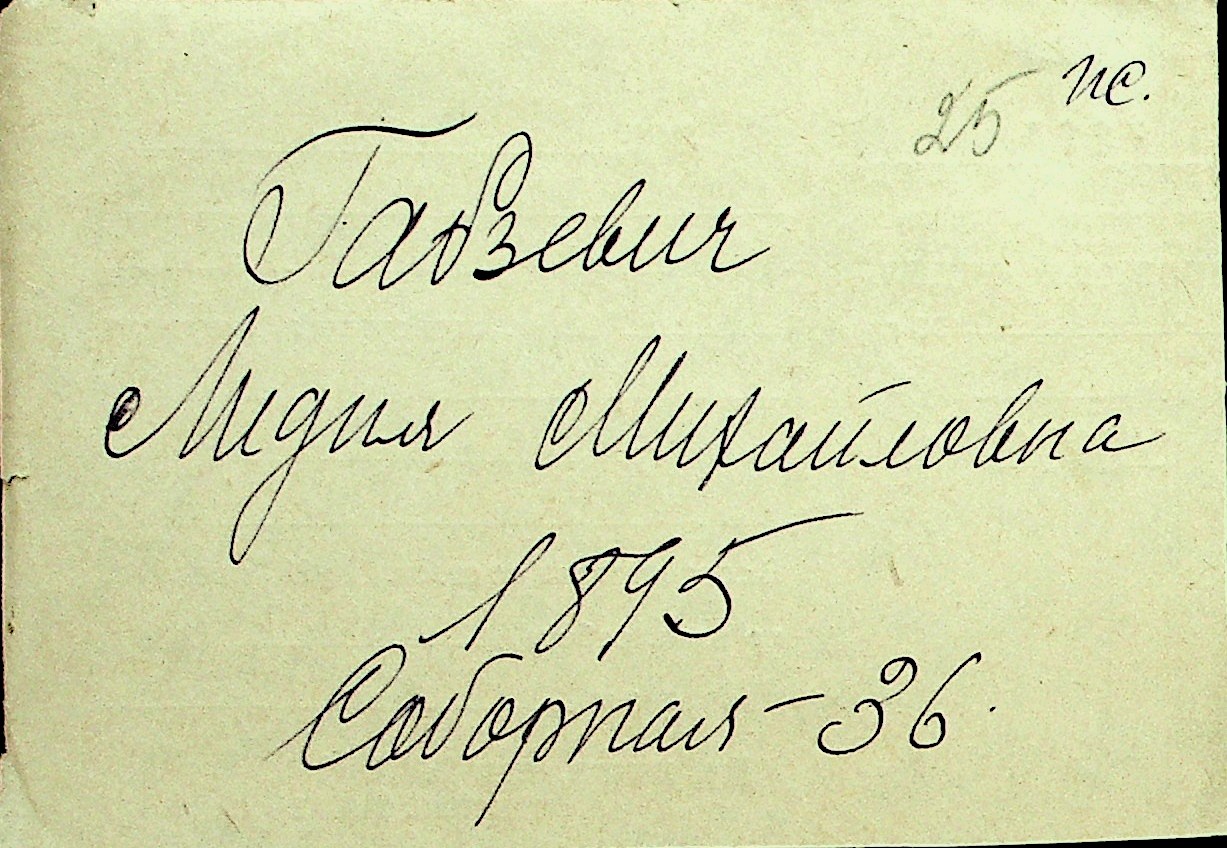 25 пс.
Габзевич
Лидия Михайловна
1895
Соборная - 36.